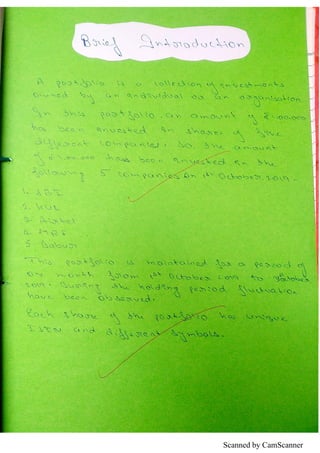 Brief Introduction
A portfolio is a collection of investments
owned by an individual or an organisation
In this portfolio, an amount of
has been invested in shares of five
different companies. So, the amount
of has been invested in the
following 5 companies on 1st October, 2019.
1.
2. HUL
3. Airtel
4.
5. Dabur
This portfolio is maintained for a period of
one month from 1st October 2019 to October
2019. During the holding period fluctuation
have been observed.
Each share of the portfolio has unique
and different symbols.
Scanned by CamScanner